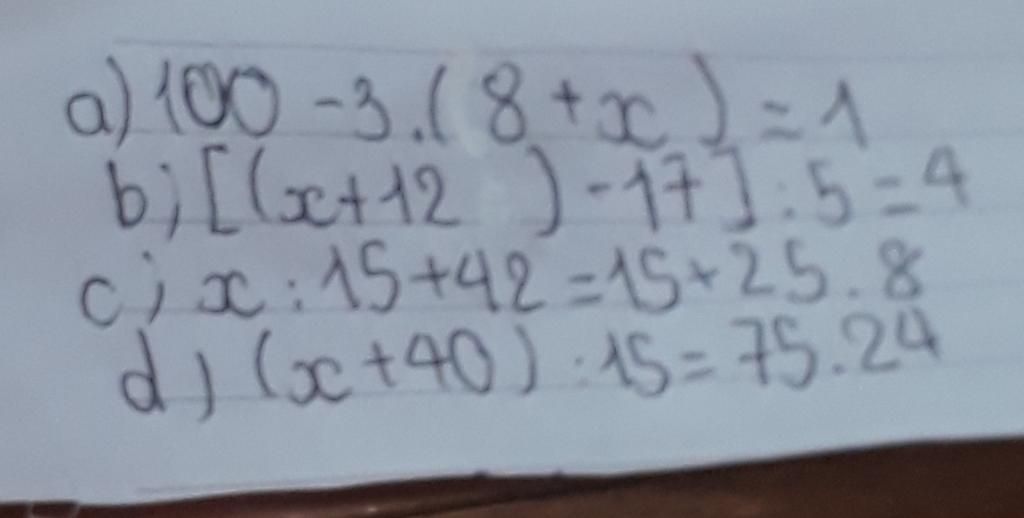 a) 100 - 3.( 8 + x ) = 1
b; [(x+12 ) - 17] : 5 = 4
c; x : 15 + 42 = 15 + 25 . 8
d) (x + 40) : 15 = 75 . 24